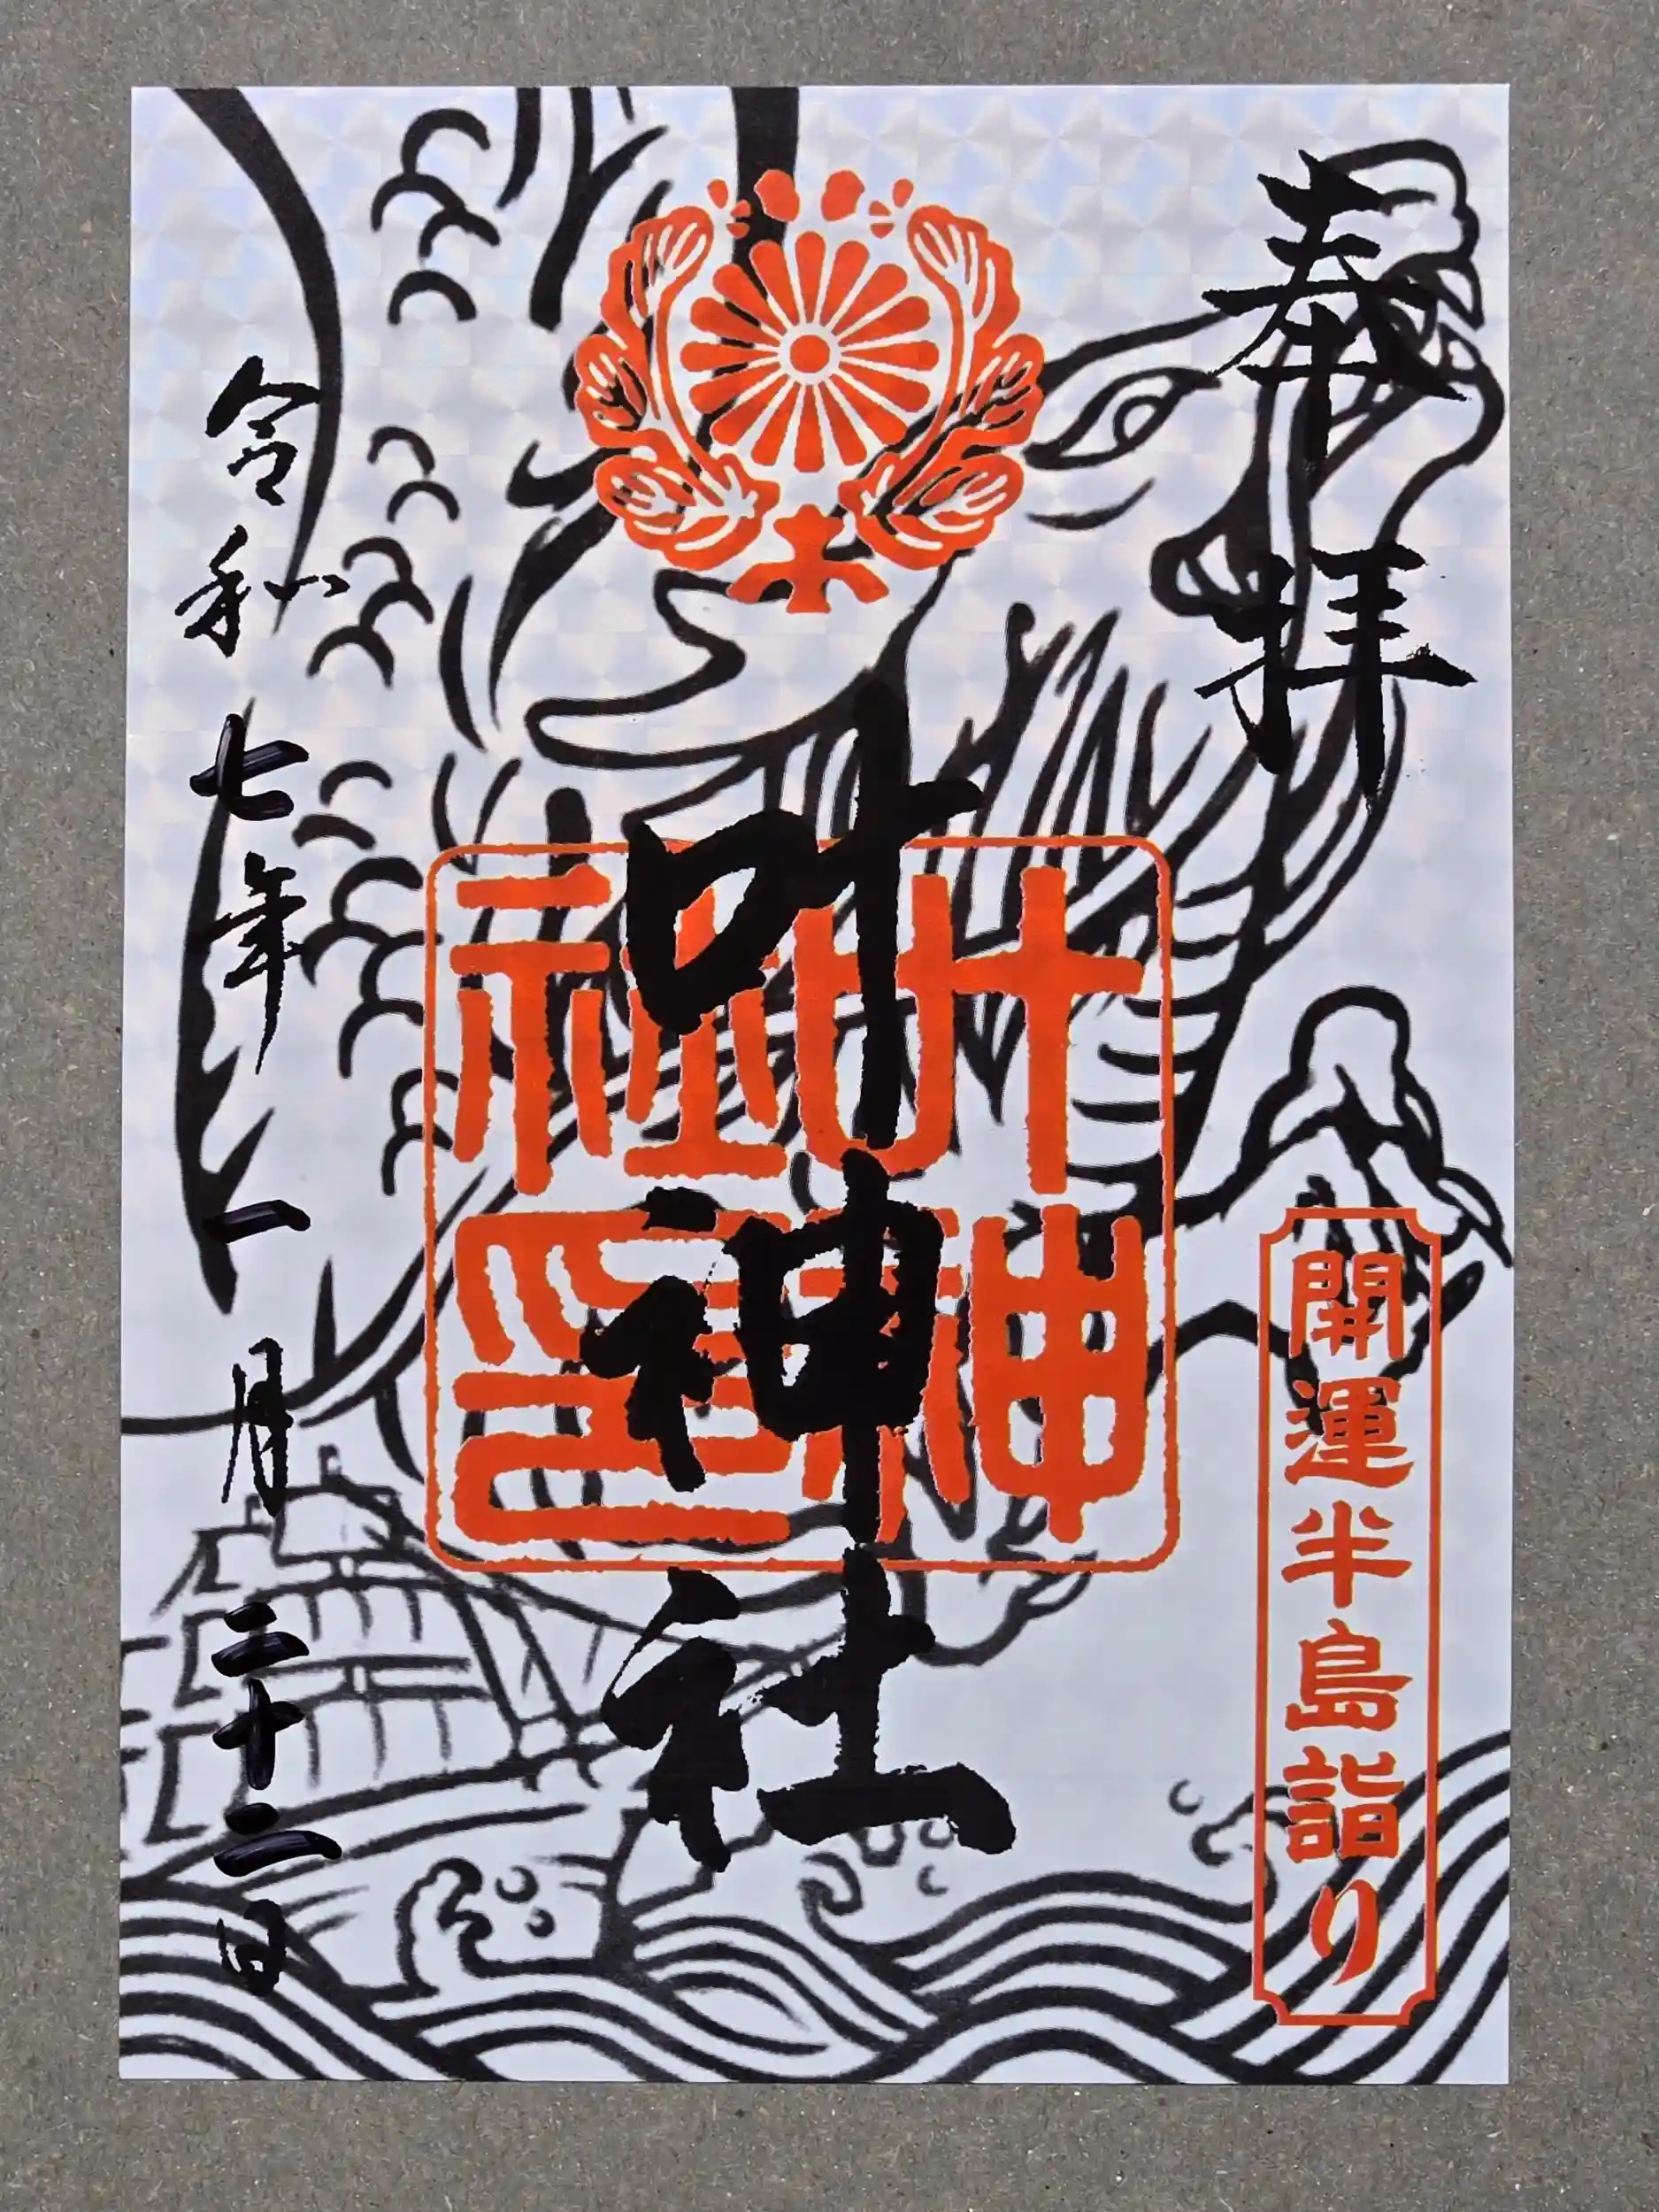 奉拝
開運半島詣り
叶神社
叶神社印
令和七年一月二十二日